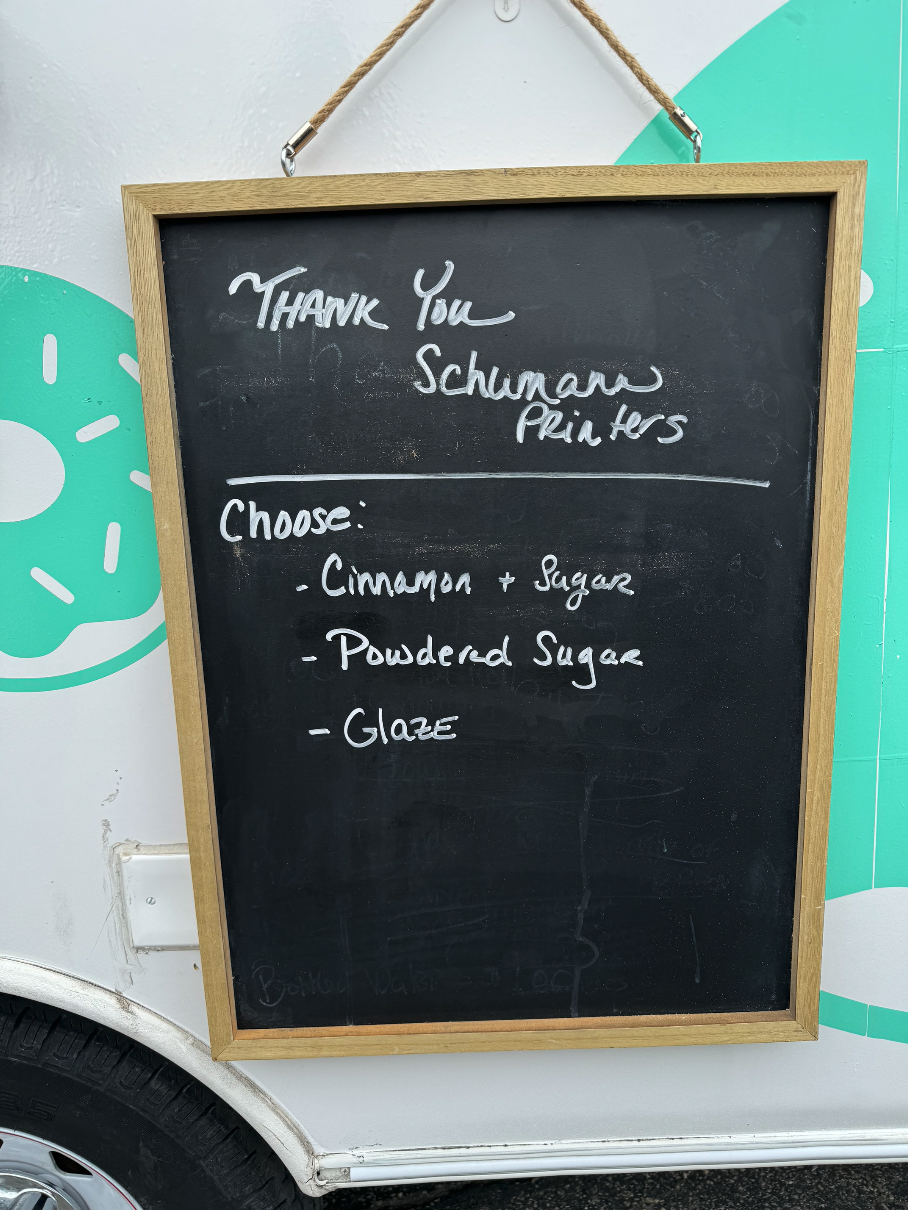 Thank You
Schumann
Printers
Choose:
- Cinnamon + Sugar
- Powdered Sugar
- Glaze
Bottled Water